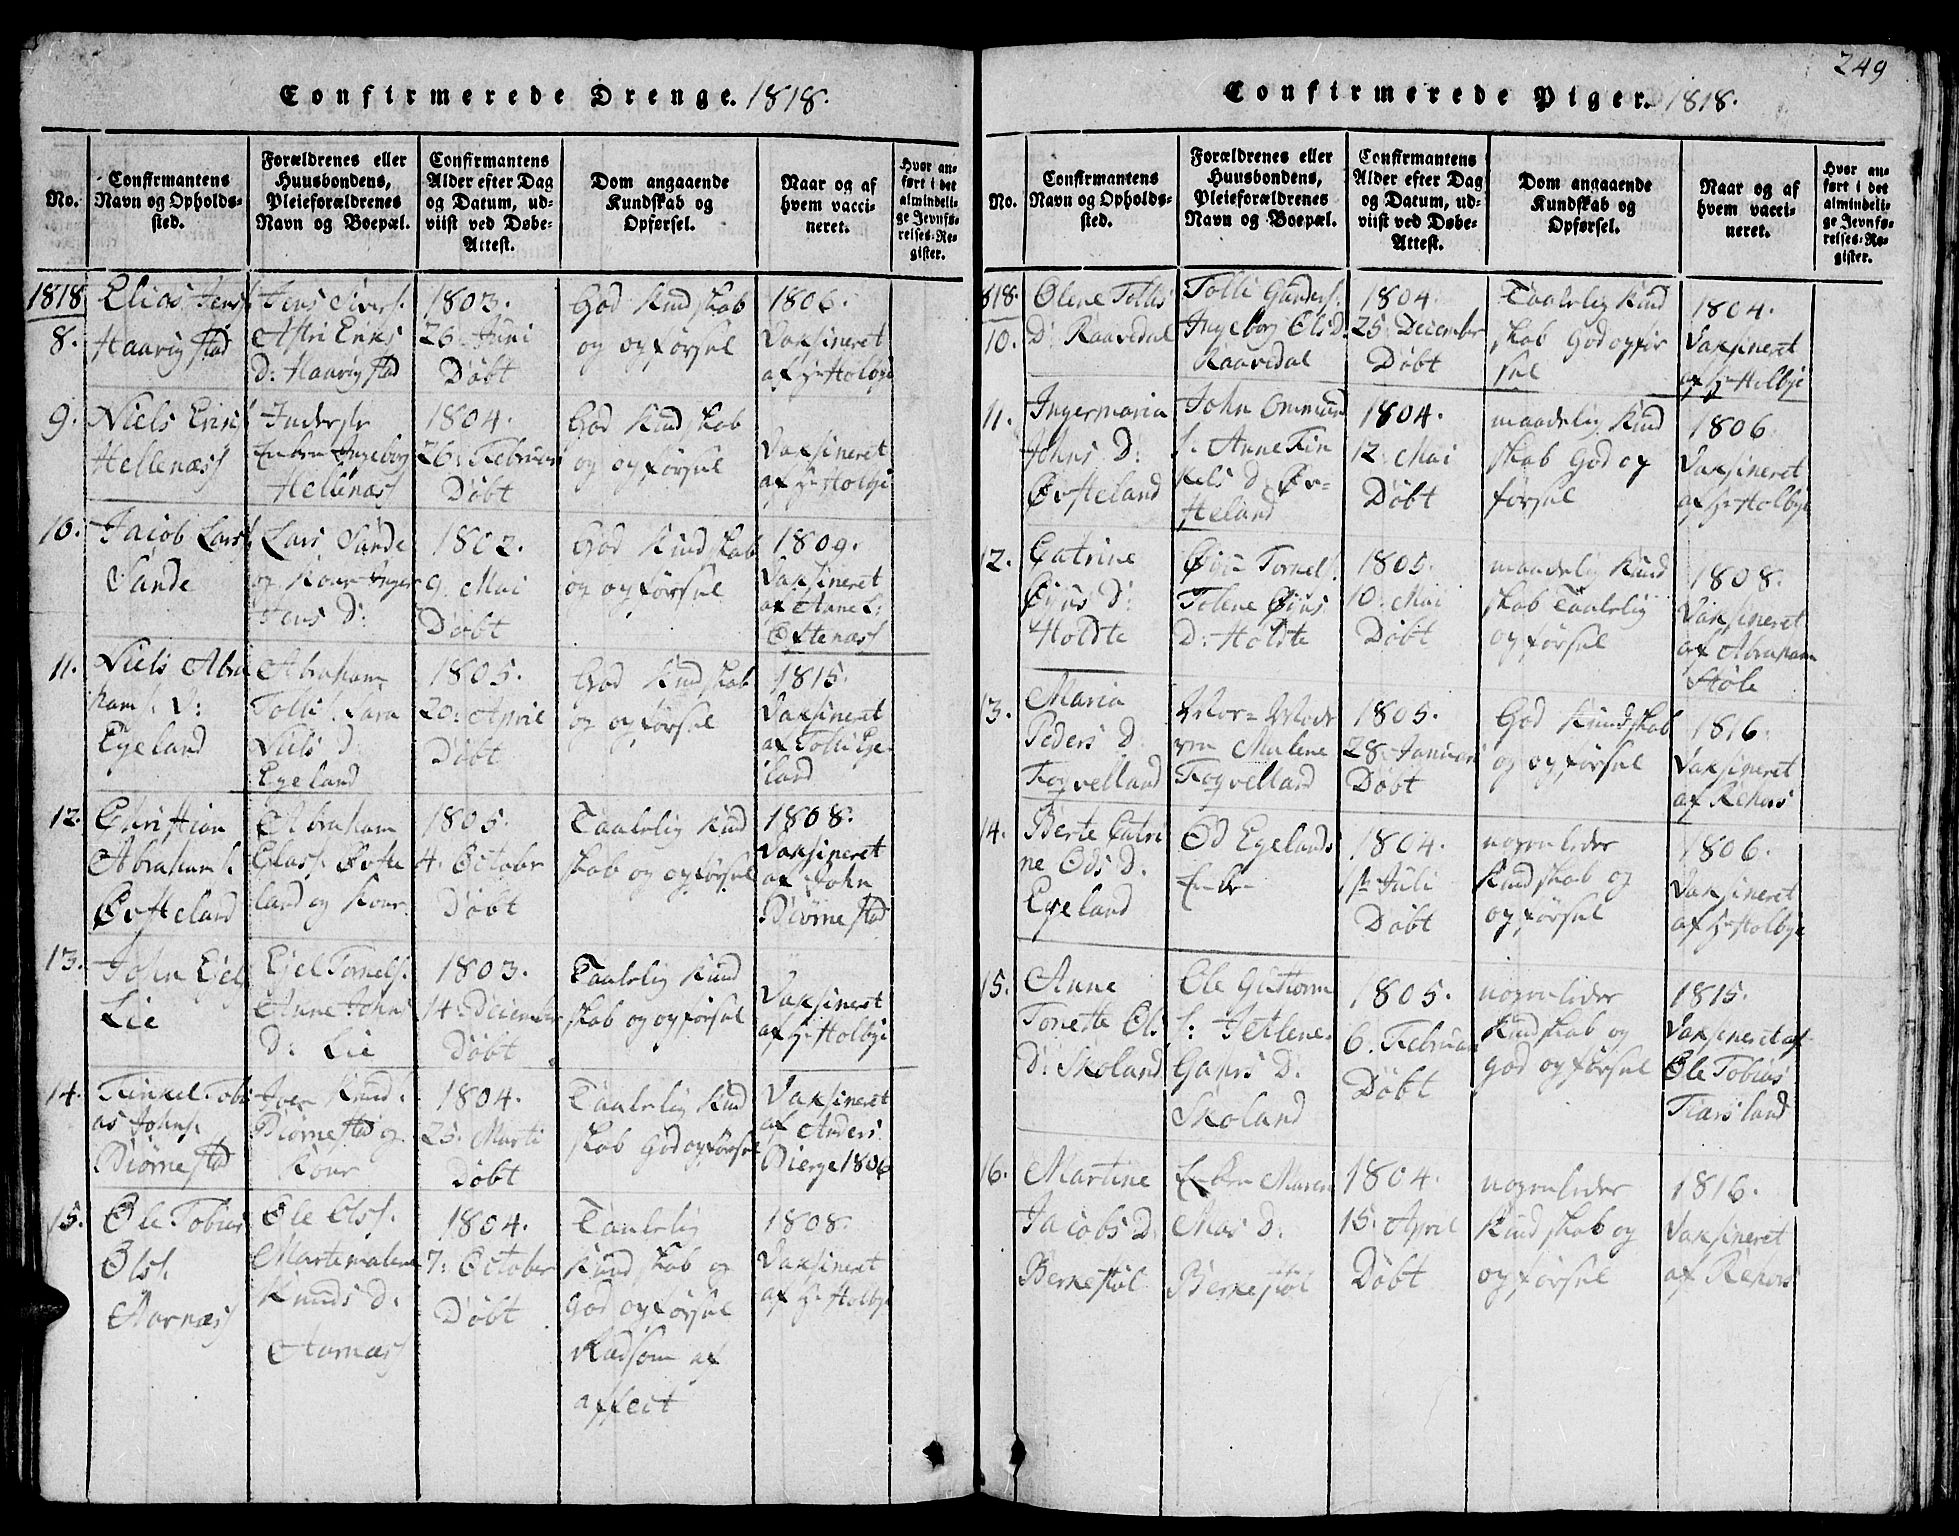 Confirmerede Drenge. 1818.
No.
Confirmantens
Navn og Opholds-
sted.
Forældrenes eller
Huusbondens,
Pleieforældrenes
Navn og Boepæl.
Confirmantens
Alder efter Dag
og Datum, ud-
viist ved Døbe-
Attest.
Dom angaaende
Kundskab og
Opførsel.
Naar og af
hvem vacci-
neret.
Hvor an-
ført i det
almindeli-
ge Jevnfø-
relses-Re-
gister.
1818
8.
Elias Jens
Haarigstad
Jens
Astri Eriks
D: Haarigstad
1803.
26. Juni
Døbt
God Kundskab
og opførsel
1806.
Vaksineret
af Hr Holbye
9.
Niels Erics
Hellenæs
Inderste
Ingeborg
Hellenæs
1804.
26. Februari
Døbt
God Kundskab
og opførsel
Vaksineret
af Hr Holbye
10.
Jacob Lars
Sande
Lars Sande
og Kone Inger
Jens D:
1802.
9. Mai
Døbt
God Kundskab
og opførsel
1809.
Vaksineret
af Anne L:
Ostenæs
11.
Niels Abra
hams. D:
Egeland
Abraham
Tollis. Sara
Niels D.
Egeland
1805.
20: April
Døbt
God Kundskab
og opførsel
1815.
Vaksineret
af Tolli Ege
land
12.
Christian
Abraham s.
Øvfteland
Abraham
land og Kone
1805.
4. October
Døbt
Taalelig Kund
skab og opførsel
1808.
Vaksineret
af John
Biørnestad
13.
John Ejels
Lie
Ejel Tornels.
Anne Johns
D: Lie
1803.
14. December
Døbt
Taalelig Kund
skab og opførsel
Vaksineret
af Hr Holbye
14.
Tinkel Tobi
as Johns.
Biørnestad
Kund.
Biørnestad og
Kone
1804.
25. Marti
Døbt
Taalelig Kund
skab God opførsel
Vaksineret
af Anders
Bierge 1806
15.
Ole Tobias
Ols.
Aarnæs
Ole Ols.
Martemalene
Knuds D.
Aarnæs
1804.
7: October
Døbt
Taalelig
Kundskab og
god opførsel
Rædsom af
affect
1808.
Vaksineret
af Hr Holbye
249
Confirmerede Piger. 1818.
No.
Confirmantens
Navn og Opholds-
sted.
Forældrenes eller
Huusbondens,
Pleieforældrenes
Navn og Boepæl.
Confirmantens
Alder efter Dag
og Datum, ud-
viist ved Døbe-
Attest.
Dom angaaende
Kundskab og
Opførsel.
Naar og af
hvem vacci-
neret.
Hvor an-
ført i det
almindeli-
ge Jevnfø-
relses-Re-
gister.
818.
10.
Olene Tollis
D: Raavedal
Tolli Gunders.
Ingeborg Ols D.
Raavedal
1804.
25. December
Døbt
Taalelig Kund
skab God opfør
sel
1804.
Vaksineret
af Hr Holbye
11.
Ingermaria
Johns D:
Øvfteland
John Ommund
s. Anne Tin
kels D. Øv=
fteland
1804.
12. Mai
Døbt
maadelig Kund
skab God op
førsel
1806.
Vaksineret
af Hr Holbye
12.
Catrine
D:
Holdte
Tornels.
Tolene
D: Holdte
1805.
10. Mai
Døbt
maadelig Kund
skab Taalelig
opførsel
1808.
Vaksineret
af Abraham
Stole
13.
Maria
Peders D.
Fogvelland
Malene
Fogvelland
1805.
28. Januari
Døbt
God Kundskab
og opførsel
1816.
Vaksineret
af Rekors
14.
Berte Catri
ne Ods D.
Egeland
Od Egelands
Enke
1804.
1ste Juli
Døbt
nogenleder
Kundskab og
opførsel
1806.
Vaksineret
af Hr Holbye
15.
Anne
Tonette Ols
D: Skoland
Ole Guttorm
s: Jetlene
D.
Skoland
1805.
6. Februari
Døbt
nogenleder
Kundskab og
god opførsel
1815.
Vaksineret af
Ole Tobias
Tiarsland
16.
Martine
Jacobs D.
Berkestøl
Maren
Mas D.
Berkestøl
1804.
15. April
Døbt
nogenleder
Kundskab og
opførsel
1816.
Vaksineret
af Rekors